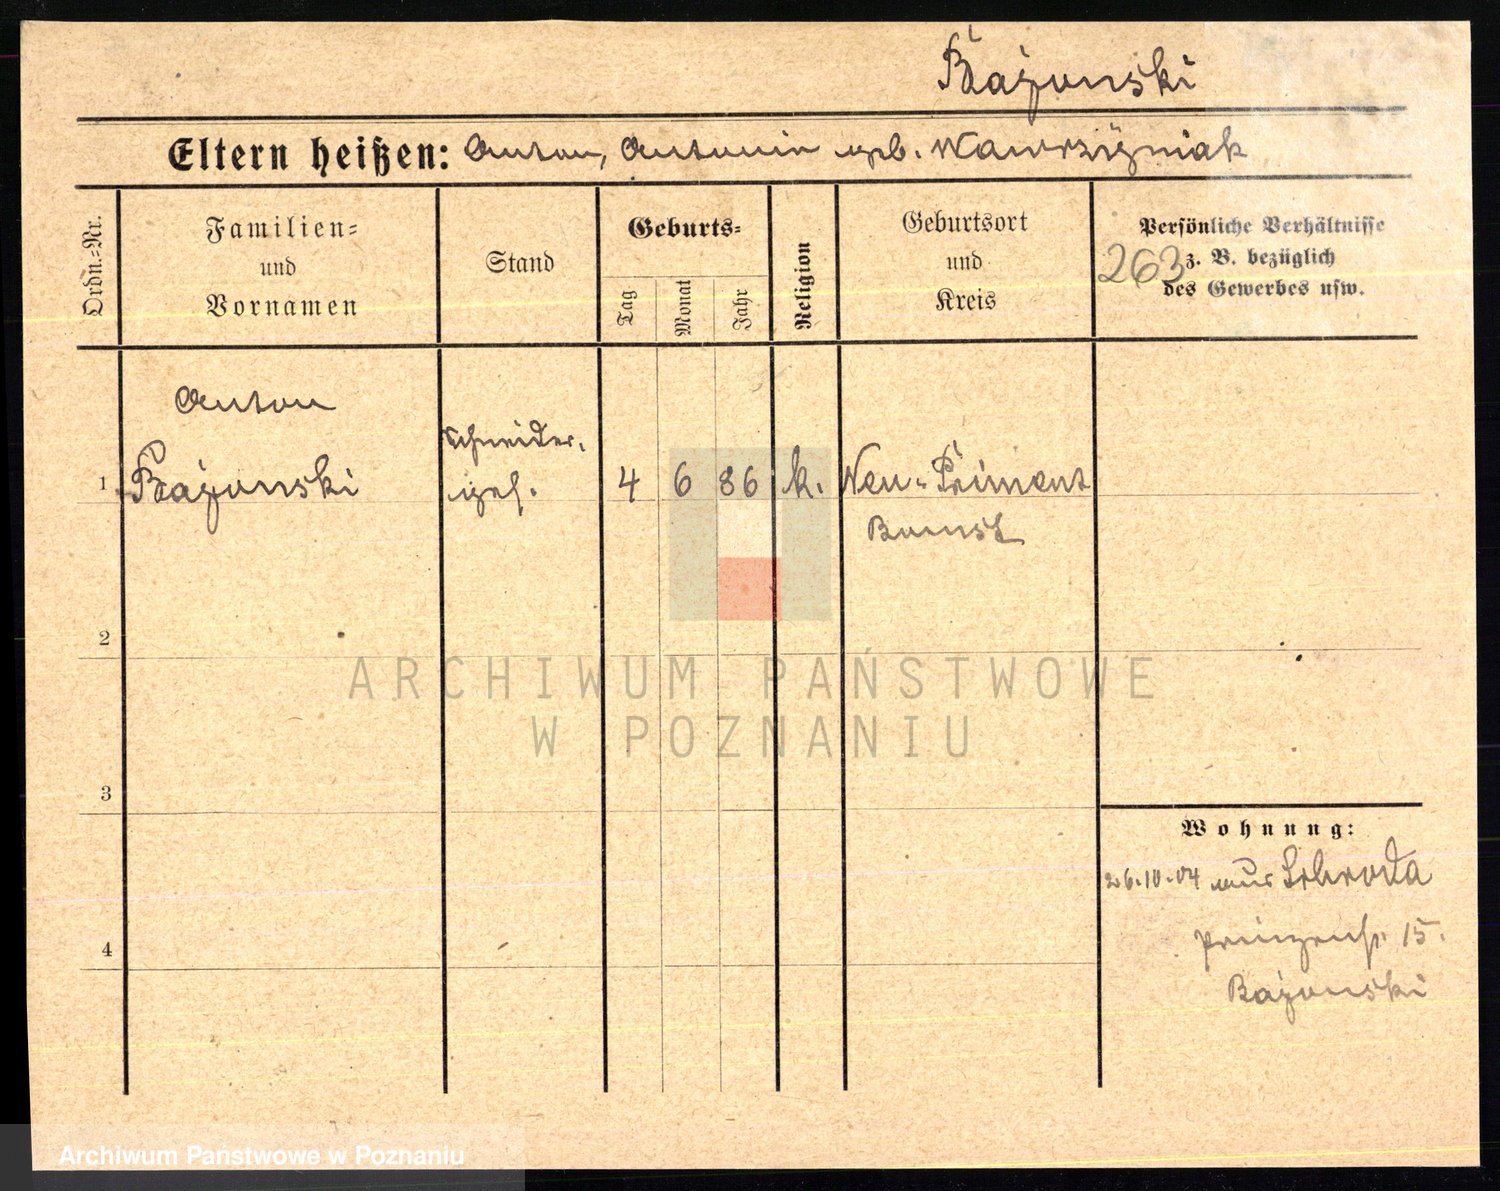 Bażonski
Eltern heißen: Anton, Antonie geb. Wawrziżniak
Ordn.-Nr.
Familien-
und
Vornamen
Stand
Geburts-
Tag
Monat
Jahr
Religion
Geburtsort
und
Kreis
Persönliche Verhältnisse
263 z. B. bezüglich
des Gewerbes usw.
Anton
Schneider-
1 Bażonski ges. 4 6 86 k. Neu-Priment
Bomst
2
ARCHIWUM PAŃSTWOWE
W POZNANIU
3
Wohnung:
26.10.04 aus Schroda
4 Prinzenstr. 15.
Bażonski
Archiwum Państwowe w Poznaniu